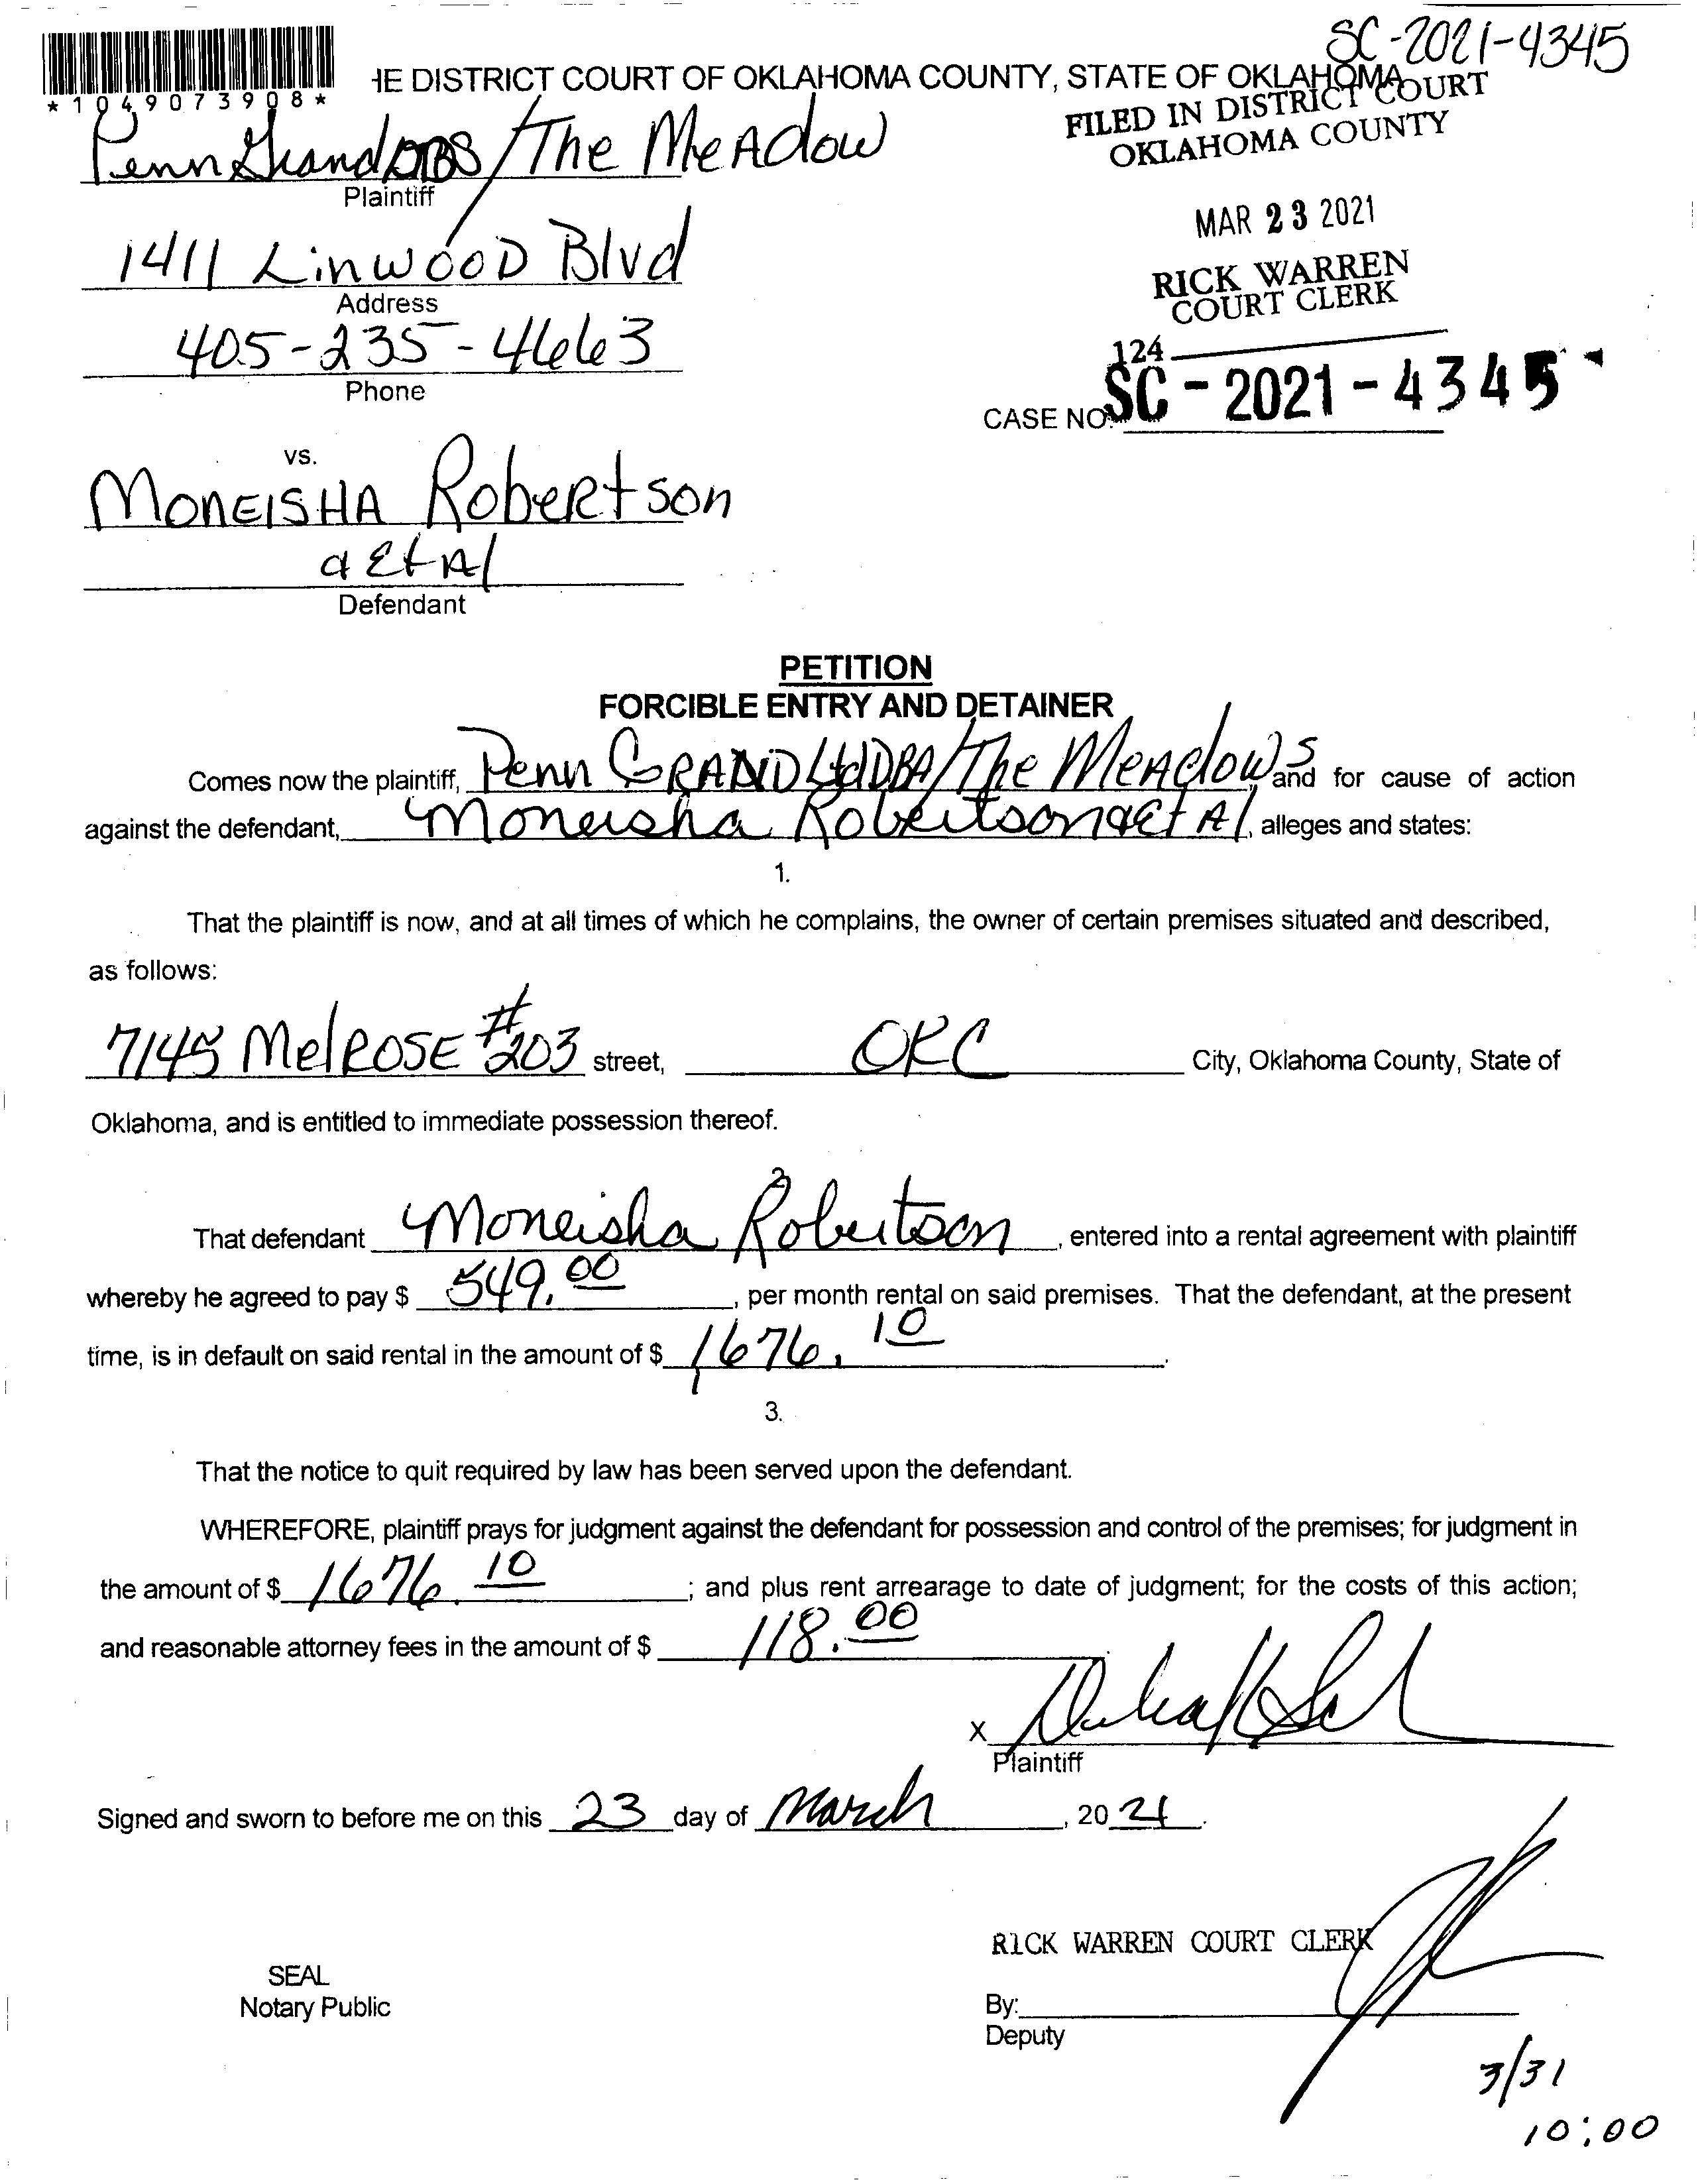 SC-2021-4345
*1049073908*
HE DISTRICT COURT OF OKLAHOMA COUNTY, STATE OF OKLAHOMA
FILED IN DISTRICT COURT
OKLAHOMA COUNTY
Penn Grand DBS / The MeAdow
Plaintiff
MAR 23 2021
1411 LinwooD Blvd
Address
RICK WARREN
COURT CLERK
405-235-4663
Phone
124
CASE NO. SC - 2021 - 4345
vs.
MonEISHA RobeRtson
& Et Al
Defendant
PETITION
FORCIBLE ENTRY AND DETAINER
Comes now the plaintiff, Penn GRAND Ltd DBA/The MeAdows and for cause of action
against the defendant, Moneisha Robertson & Et Al, alleges and states:
1.
That the plaintiff is now, and at all times of which he complains, the owner of certain premises situated and described,
as follows:
7145 MelROSE #203 street, OKC City, Oklahoma County, State of
Oklahoma, and is entitled to immediate possession thereof.
2
That defendant Moneisha Robertson, entered into a rental agreement with plaintiff
whereby he agreed to pay $ 549.00, per month rental on said premises. That the defendant, at the present
time, is in default on said rental in the amount of $ 1676.10.
3.
That the notice to quit required by law has been served upon the defendant.
WHEREFORE, plaintiff prays for judgment against the defendant for possession and control of the premises; for judgment in
the amount of $ 1676.10; and plus rent arrearage to date of judgment; for the costs of this action;
and reasonable attorney fees in the amount of $ 118.00
X
Plaintiff
Signed and sworn to before me on this 23 day of March, 2021.
RICK WARREN COURT CLERK
SEAL
Notary Public
By:
Deputy
3/31
10:00